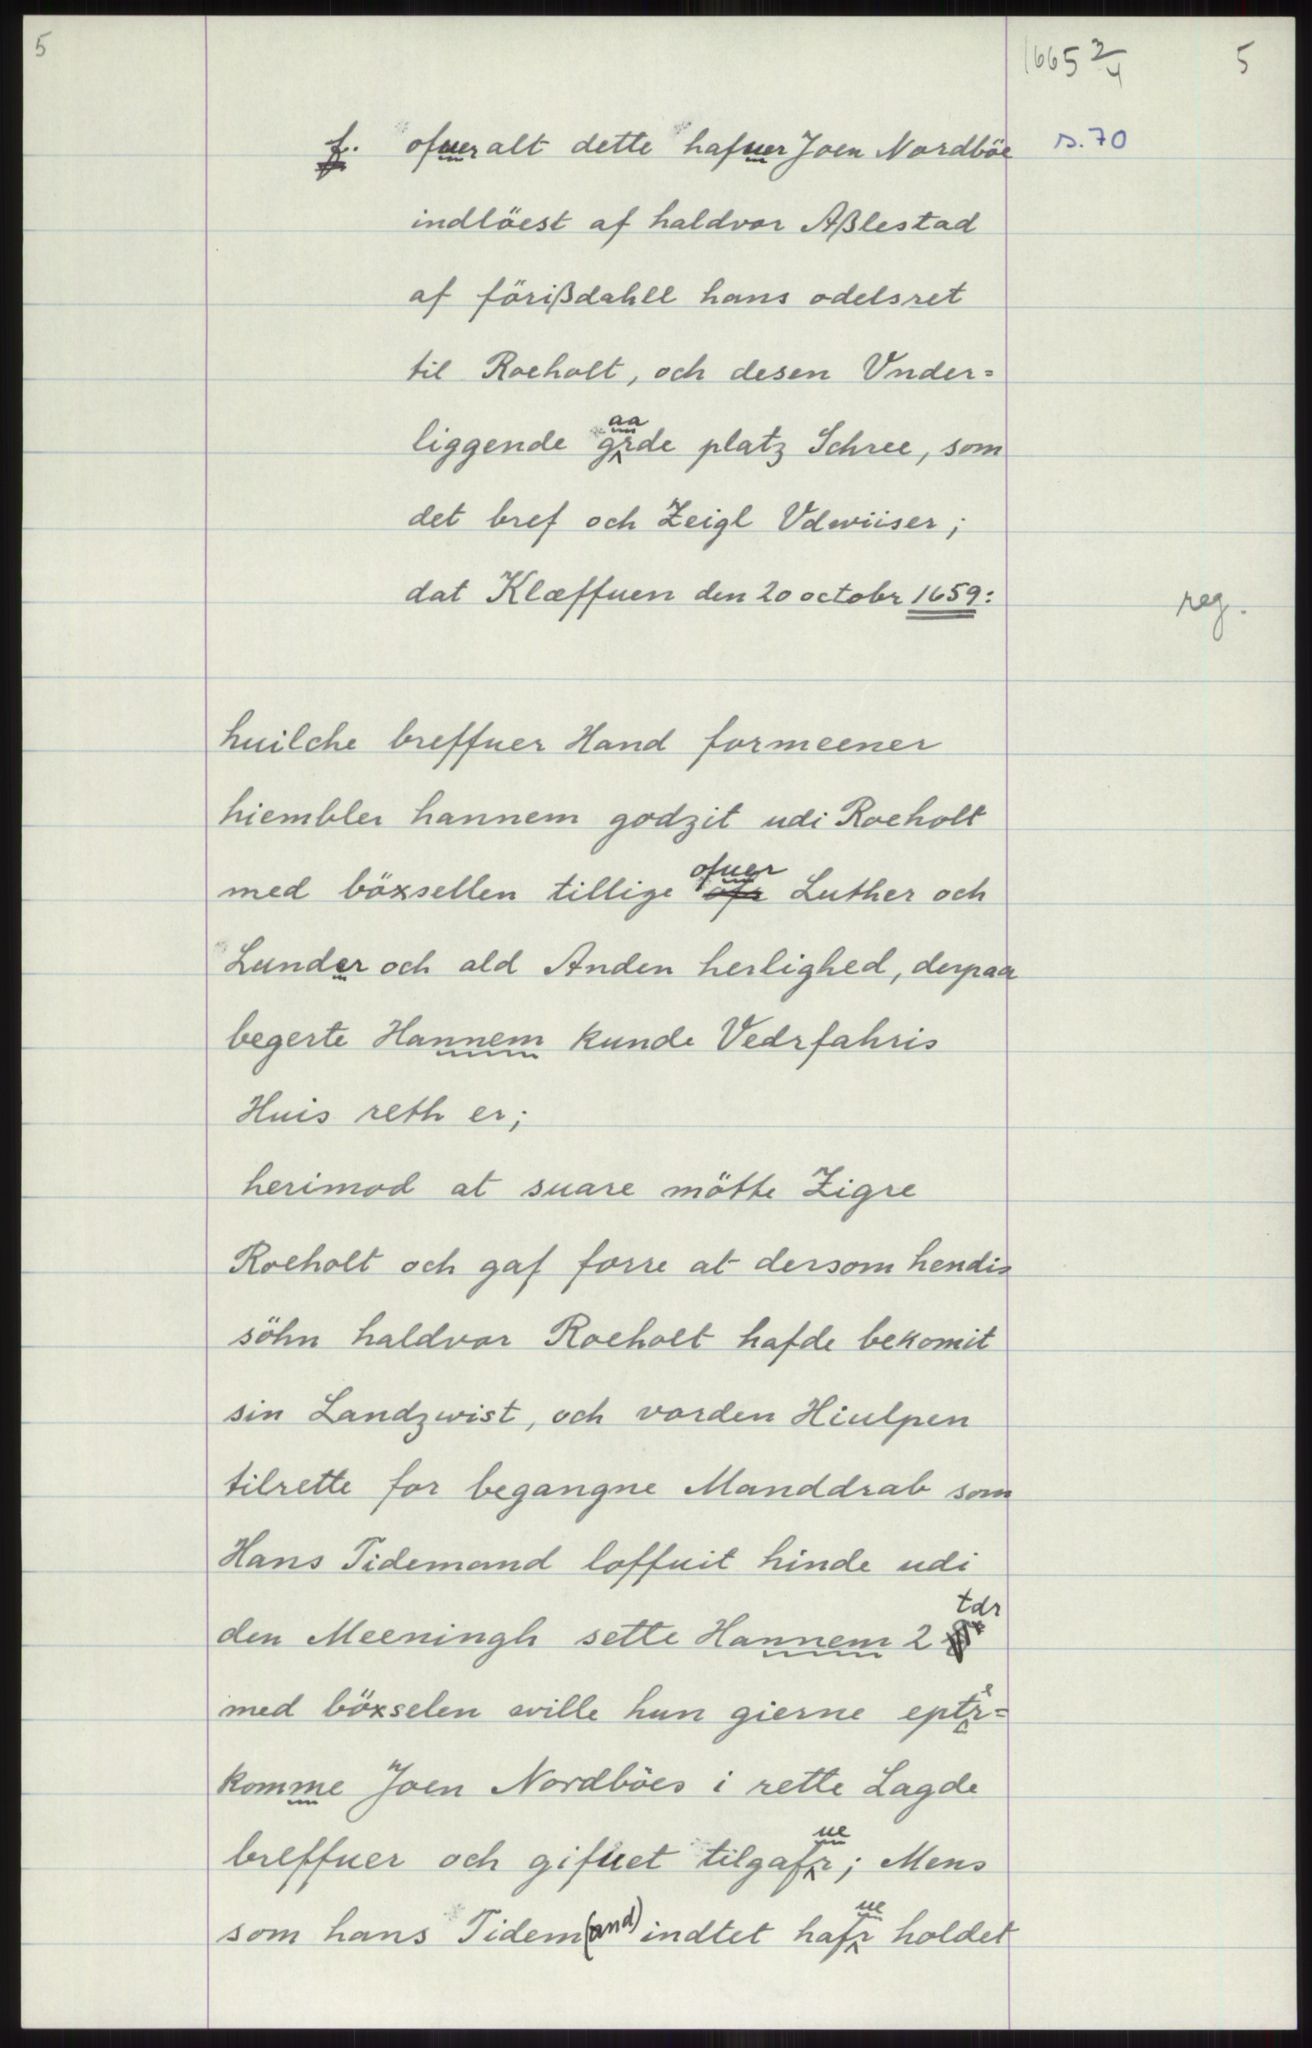 5
1665 2/4
5
f. ofuer alt dette hafuer Joen Nordböe s. 70
indlöest af haldvor Aßlestad
af förißdahll hans odelsret
til Roeholt, och desen Vnder=
liggende gaarde platz Schree, som
det bref och Zeigl Vdwiiser;
dat Klæffuen den 20 octobr 1659:
reg.
huilche breffuer Hand formeener
hiembler hannem godzit udi Roeholt
med böxsellen tillige ofuer Luther och
Lunder och ald Anden herlighed, derpaa
begerte Hannem kunde Vedrfahris
Huis reth er;
herimod at suare mötte Zigre
Roeholt och gaf forre at dersom hendis
söhn haldvor Roeholt hafde bekomit
sin Landzwist, och vorden Hiulpen
tilrette for begangne Manddrab som
Hans Tidemand loffuit hinde udi
den Meeningh sette Hannem 2 tdr
med böxselen wille hun gierne epter=
komme Joen Nordböes i rette Lagde
breffuer och gifuet tilgafuer; Mens
som hans Tidem(and) indtet hafuer holdet